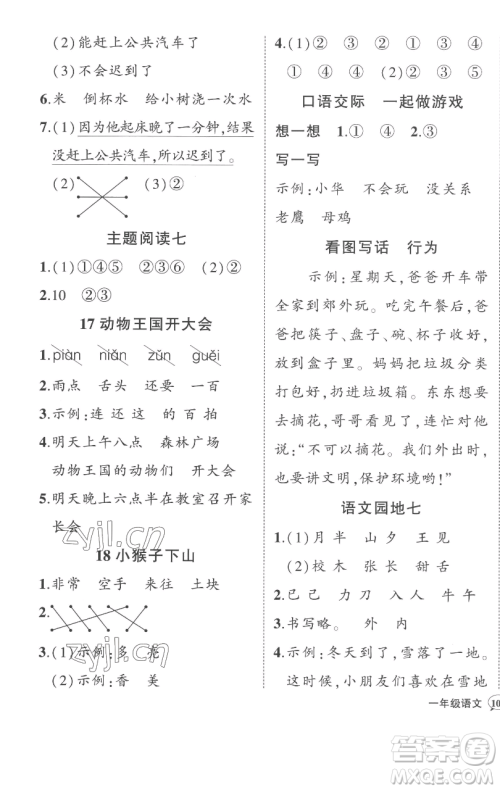 (2)能赶上公共汽车了
(3)不会迟到了
6.米 倒杯水 给小树浇一次水
7.(1)因为他起床晚了一分钟,结果
没赶上公共汽车,所以迟到了。
(2) (3)②
主题阅读七
1.(1)①④⑤ ②③⑥ (2)②
2.10 ②③
17 动物王国开大会
1.piàn niǎn zūn guěi
2.雨点 舌头 还要 一百
3.示例:连 还 这 百 拍
4.明天上午八点 森林广场
动物王国的动物们 开大会
5.明天晚上六点半在教室召开家
长会
18 小猴子下山
1.非常 空手 往来 土块
2.
3.(1)示例:多 亮
(2)示例:香 美
4.(1)① ③ ② ④ ⑤
① ④ ⑤ (2)② ④
口语交际 一起做游戏
想一想 1.① ④ 2.③
写一写
示例:小华 不会玩 没关系
老鹰 母鸡
看图写话 行为
示例:星期天,爸爸开车带
全家去郊外游玩。吃完午餐后,爸
爸把筷子、盘子、碗、杯子、锅都收
到后备厢里。妈妈把垃圾分类
打包好,扔进垃圾箱。东东想要
去摘花,哥哥看见了,连忙对他
说:“不可以摘花。我们外出,也
要讲文明,保护环境哟!”
语文园地七
1.(1)月 半 山 夕 王 见
(2)校 木 张 长 甜 舌
2.己 已 刀 力 入 人 牛 午
3.书写略。 外 内
4.示例:冬天到了,雪落了一地。
这时,小朋友们喜欢在雪地
一年级语文 10
zyjl.cn
zyjl.cn
答案圈
MXQE.COM